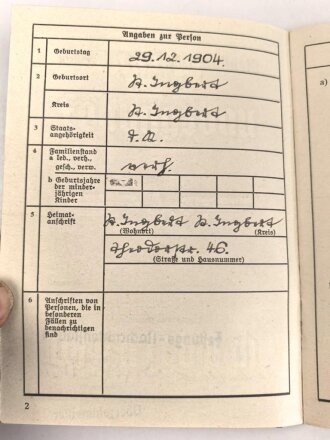 Angaben zur Person
1 Geburtstag 29.12.1904.
2 Geburtsort St. Ingbert
Kreis St. Ingbert
3 Staats-
angehörigkeit
4 Familienstand
a led., verh., verh.
gesch., verw.
b Geburtsjahre
der minder-
jährigen
Kinder
5 Heimat-
anschrift St. Ingbert St. Ingbert
(Wohnort) (Kreis)
Theodorstr. 46.
(Straße und Hausnummer)
6 Anschriften von
Personen, die in
besonderen
Fällen zu
benachrichtigen
sind
2
a)